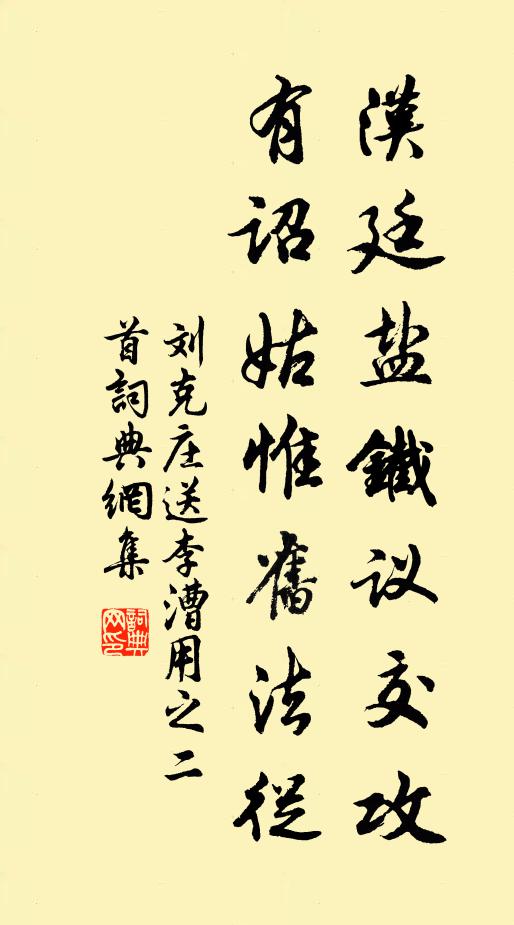 漢廷盐鐵议交攻
有詔姑惟舊法從
刘克庄送李漕用之二
首詞典網集
詞典网印